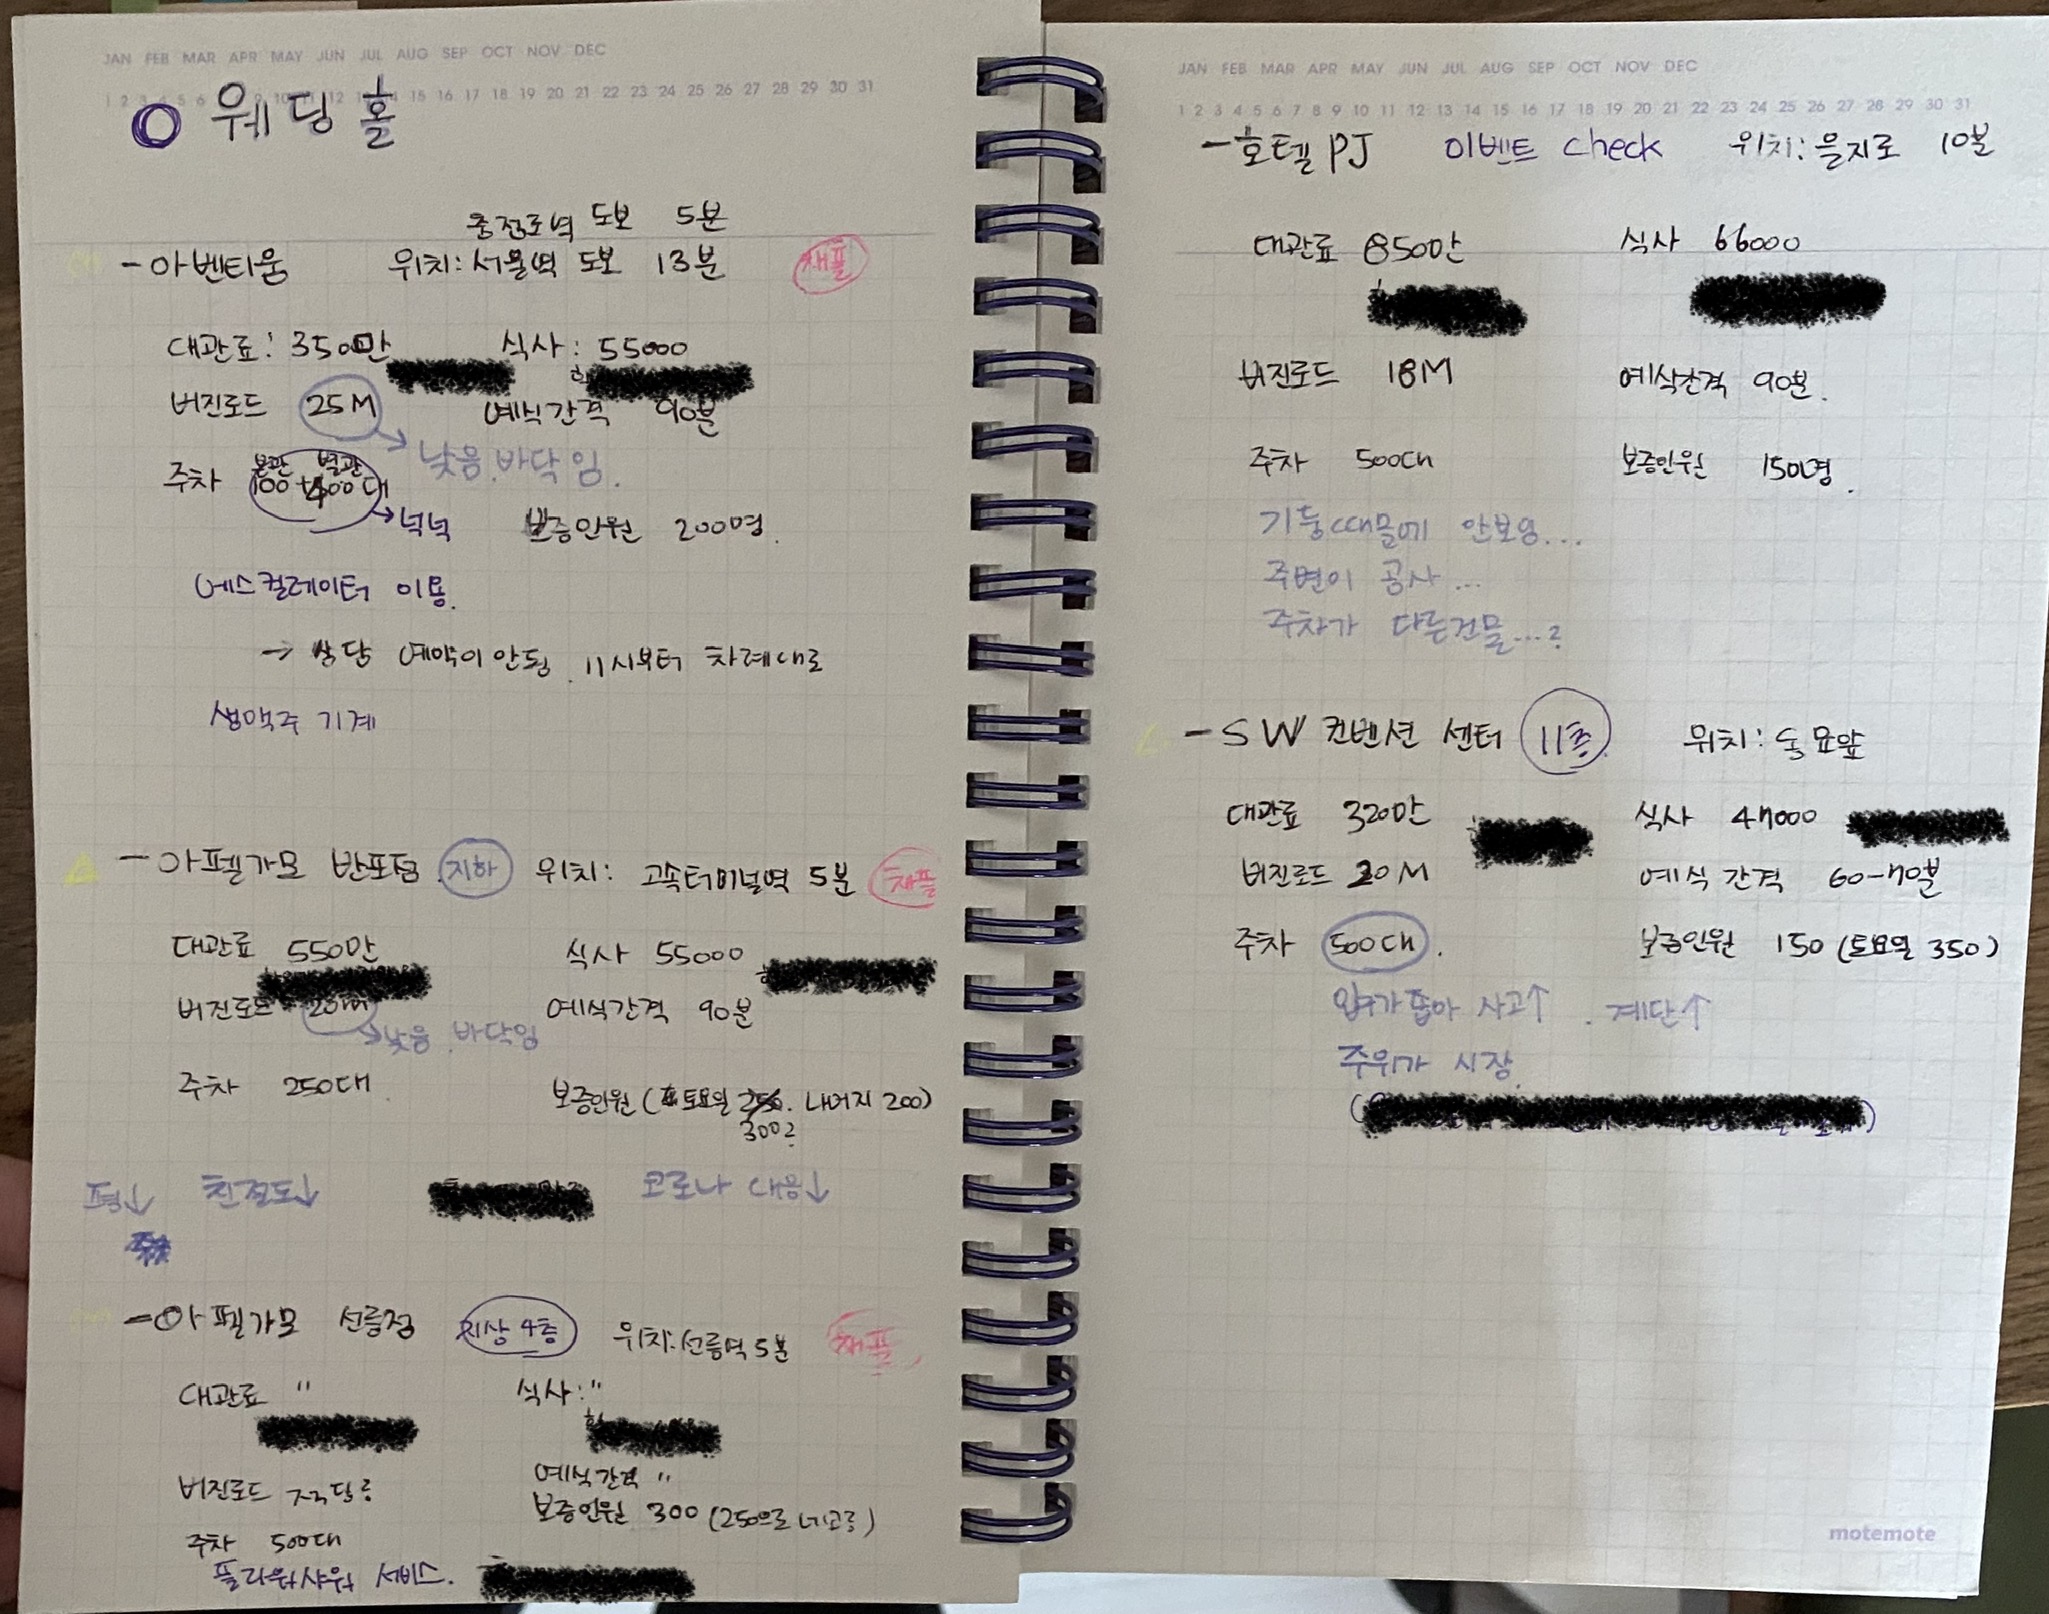 JAN FEB MAR APR MAY JUN JUL AUG SEP OCT NOV DEC
1 2 3 4 5 6 9 10 11 12 14 15 16 17 18 19 20 21 22 23 24 25 26 27 28 29 30 31
웨딩홀
충정로역 도보 5분
- 아벤티움 위치: 서울역 도보 13분 채플
대관료: 350만 식사: 55000
버진로드 25M 예식간격 90분
→ 낮음. 바닥임.
본관 별관
주차 100+400대
→ 넉넉 보증인원 200명.
에스컬레이터 이용.
→ 상담 예약이 안됨. 11시부터 차례대로
생맥주 기계
- 아펠가모 반포점 지하 위치: 고속터미널역 5분 채플
대관료 550만 식사 55000
버진로드 20m 예식간격 90분
→ 낮음. 바닥임
주차 250대 보증인원 (토요일 250. 나머지 200)
300?
평↓ 친절도↓ 코로나 대응↓
- 아펠가모 선릉점 지상 4층 위치: 선릉역 5분 채플
대관료 " 식사: "
버진로드 예식간격 "
보증인원 300 (250으로 네고중)
주차 500대
플라워샤워 서비스.
JAN FEB MAR APR MAY JUN JUL AUG SEP OCT NOV DEC
1 2 3 4 5 6 7 8 9 10 11 12 13 14 15 16 17 18 19 20 21 22 23 24 25 26 27 28 29 30 31
- 호텔 PJ 이벤트 check 위치: 을지로 10분
대관료 850만 식사 66000
버진로드 18M 예식간격 90분.
주차 500대 보증인원 150명.
기둥때문에 안보임...
주변이 공사...
주차가 다른건물...?
- SW 컨벤션 센터 11층 위치: 동묘앞
대관료 320만 식사 47000
버진로드 20M 예식간격 60-70분
주차 500대. 보증인원 150 (토요일 350)
입구가 좁아 사고↑. 계단↑
주위가 시장.
motemote